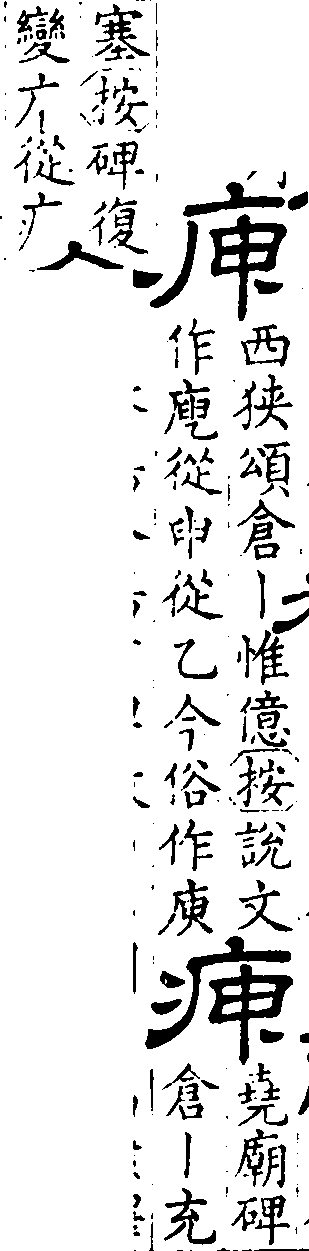 西狹頌倉丨惟億按說文
作庾從申從乙今俗作庾
堯廟碑
倉丨充
塞按碑復
變广從疒